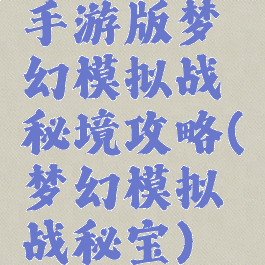 手游版梦
幻模拟战
秘境攻略(
梦幻模拟
战秘宝)